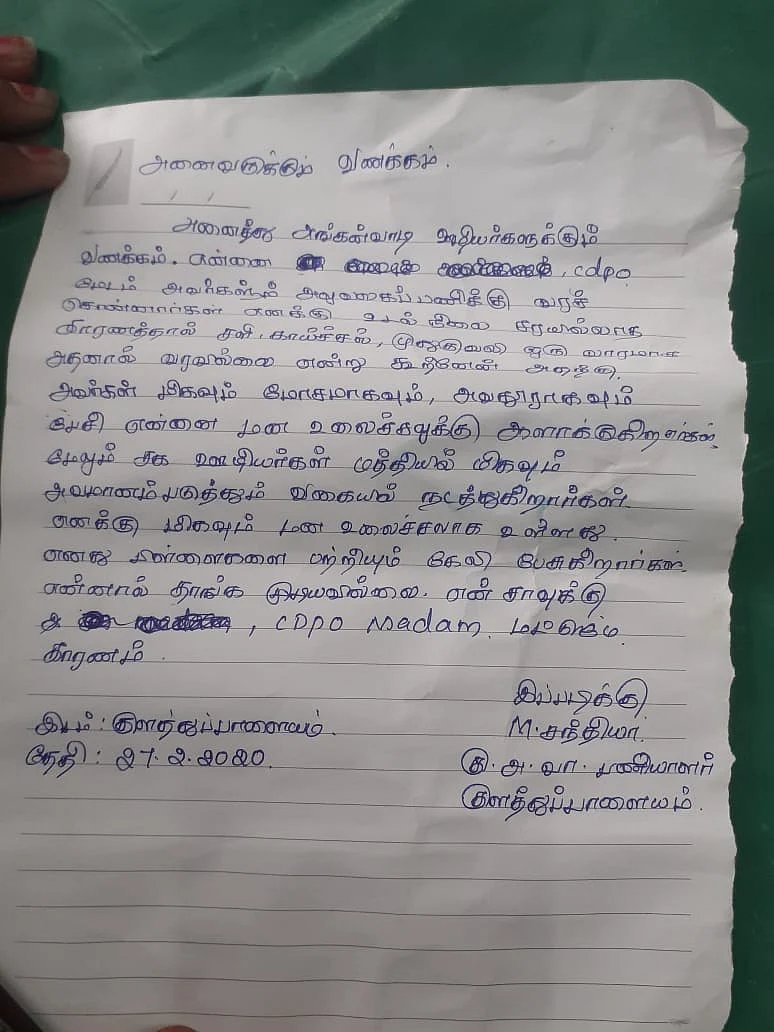 அனைவருக்கும் வணக்கம்.
அனைத்து அங்கன்வாடி ஊழியர்களுக்கும்
வணக்கம். என்னை , cdpo
மேடம் அவர்களும் அலுவலகப்பணிக்கு வரச்
சொன்னார்கள் எனக்கு உடல் நிலை சரியில்லாத
காரணத்தால் சளி, காய்ச்சல், முதுகுவலி ஒரு வாரமாக
அதனால் வரவில்லை என்று கூறினேன் அதற்கு.
அவர்கள் மிகவும் மோசமாகவும், அவதூறாகவும்
பேசி என்னை மன உலைச்சலுக்கு ஆளாக்குகிறார்கள்.
மேலும் சக ஊழியர்கள் மத்தியில் மிகவும்
அவமானப்படுத்தும் வகையில் நடத்துகிறார்கள்.
எனக்கு மிகவும் மன உலைச்சலாக உள்ளது.
எனது பிள்ளைகளை பற்றியும் கேலி பேசுகிறார்கள்.
என்னால் தாங்க முடியவில்லை. என் சாவுக்கு
, CDPO Madam
காரணம்.
இப்படிக்கு
இடம் : குளத்துப்பாளையம்.
M. சந்தியா.
தேதி : 27.2.2020.
கு. அ. வா. பணியாளர்
குளத்துப்பாளையம்.